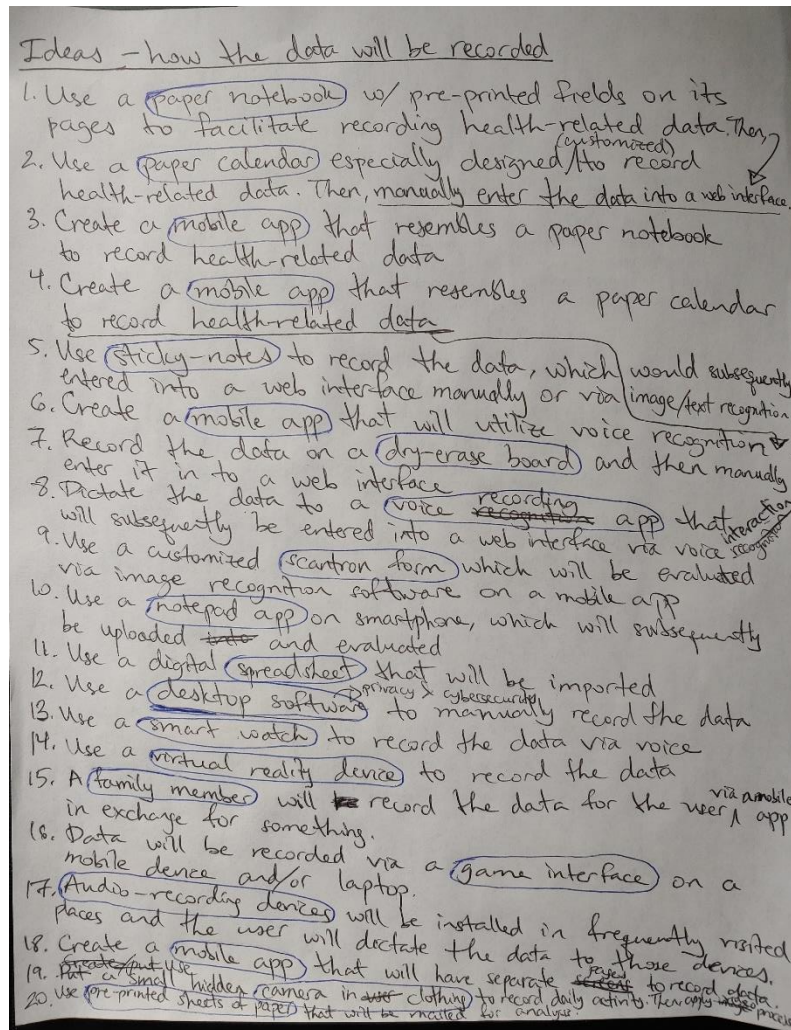 Ideas - how the data will be recorded
1. Use a paper notebook w/ pre-printed fields on its
pages to facilitate recording health-related data. Then,
2. Use a paper calendar especially designed/to record
(customized)
health-related data. Then, manually enter the data into a web interface.
3. Create a mobile app that resembles a paper notebook
to record health-related data
4. Create a mobile app that resembles a paper calendar
to record health-related data
5. Use sticky-notes to record the data, which would subsequently
entered into a web interface manually or via image/text recognition
6. Create a mobile app that will utilize voice recognition
7. Record the data on a dry-erase board and then manually
enter it in to a web interface
8. Dictate the data to a voice recognition recording app that
will subsequently be entered into a web interface via voice recognition interaction
9. Use a customized scantron form which will be evaluated
via image recognition software on a mobile app
10. Use a notepad app on smartphone, which will subsequently
be uploaded into and evaluated
11. Use a digital spreadsheet that will be imported
12. Use a desktop software to manually record the data
privacy & cybersecurity
13. Use a smart watch to record the data via voice
14. Use a virtual reality device to record the data
15. A family member will record the data for the user via a mobile app
in exchange for something.
16. Data will be recorded via a game interface on a
mobile device and/or laptop.
17. Audio-recording devices will be installed in frequently visited
places and the user will dictate the data to those devices.
18. Create a mobile app that will have separate pages to record data.
19. Put Create/put Use a small hidden camera in user clothing to record daily activity. Then apply process
20. Use pre-printed sheets of paper that will be mailed for analysis.